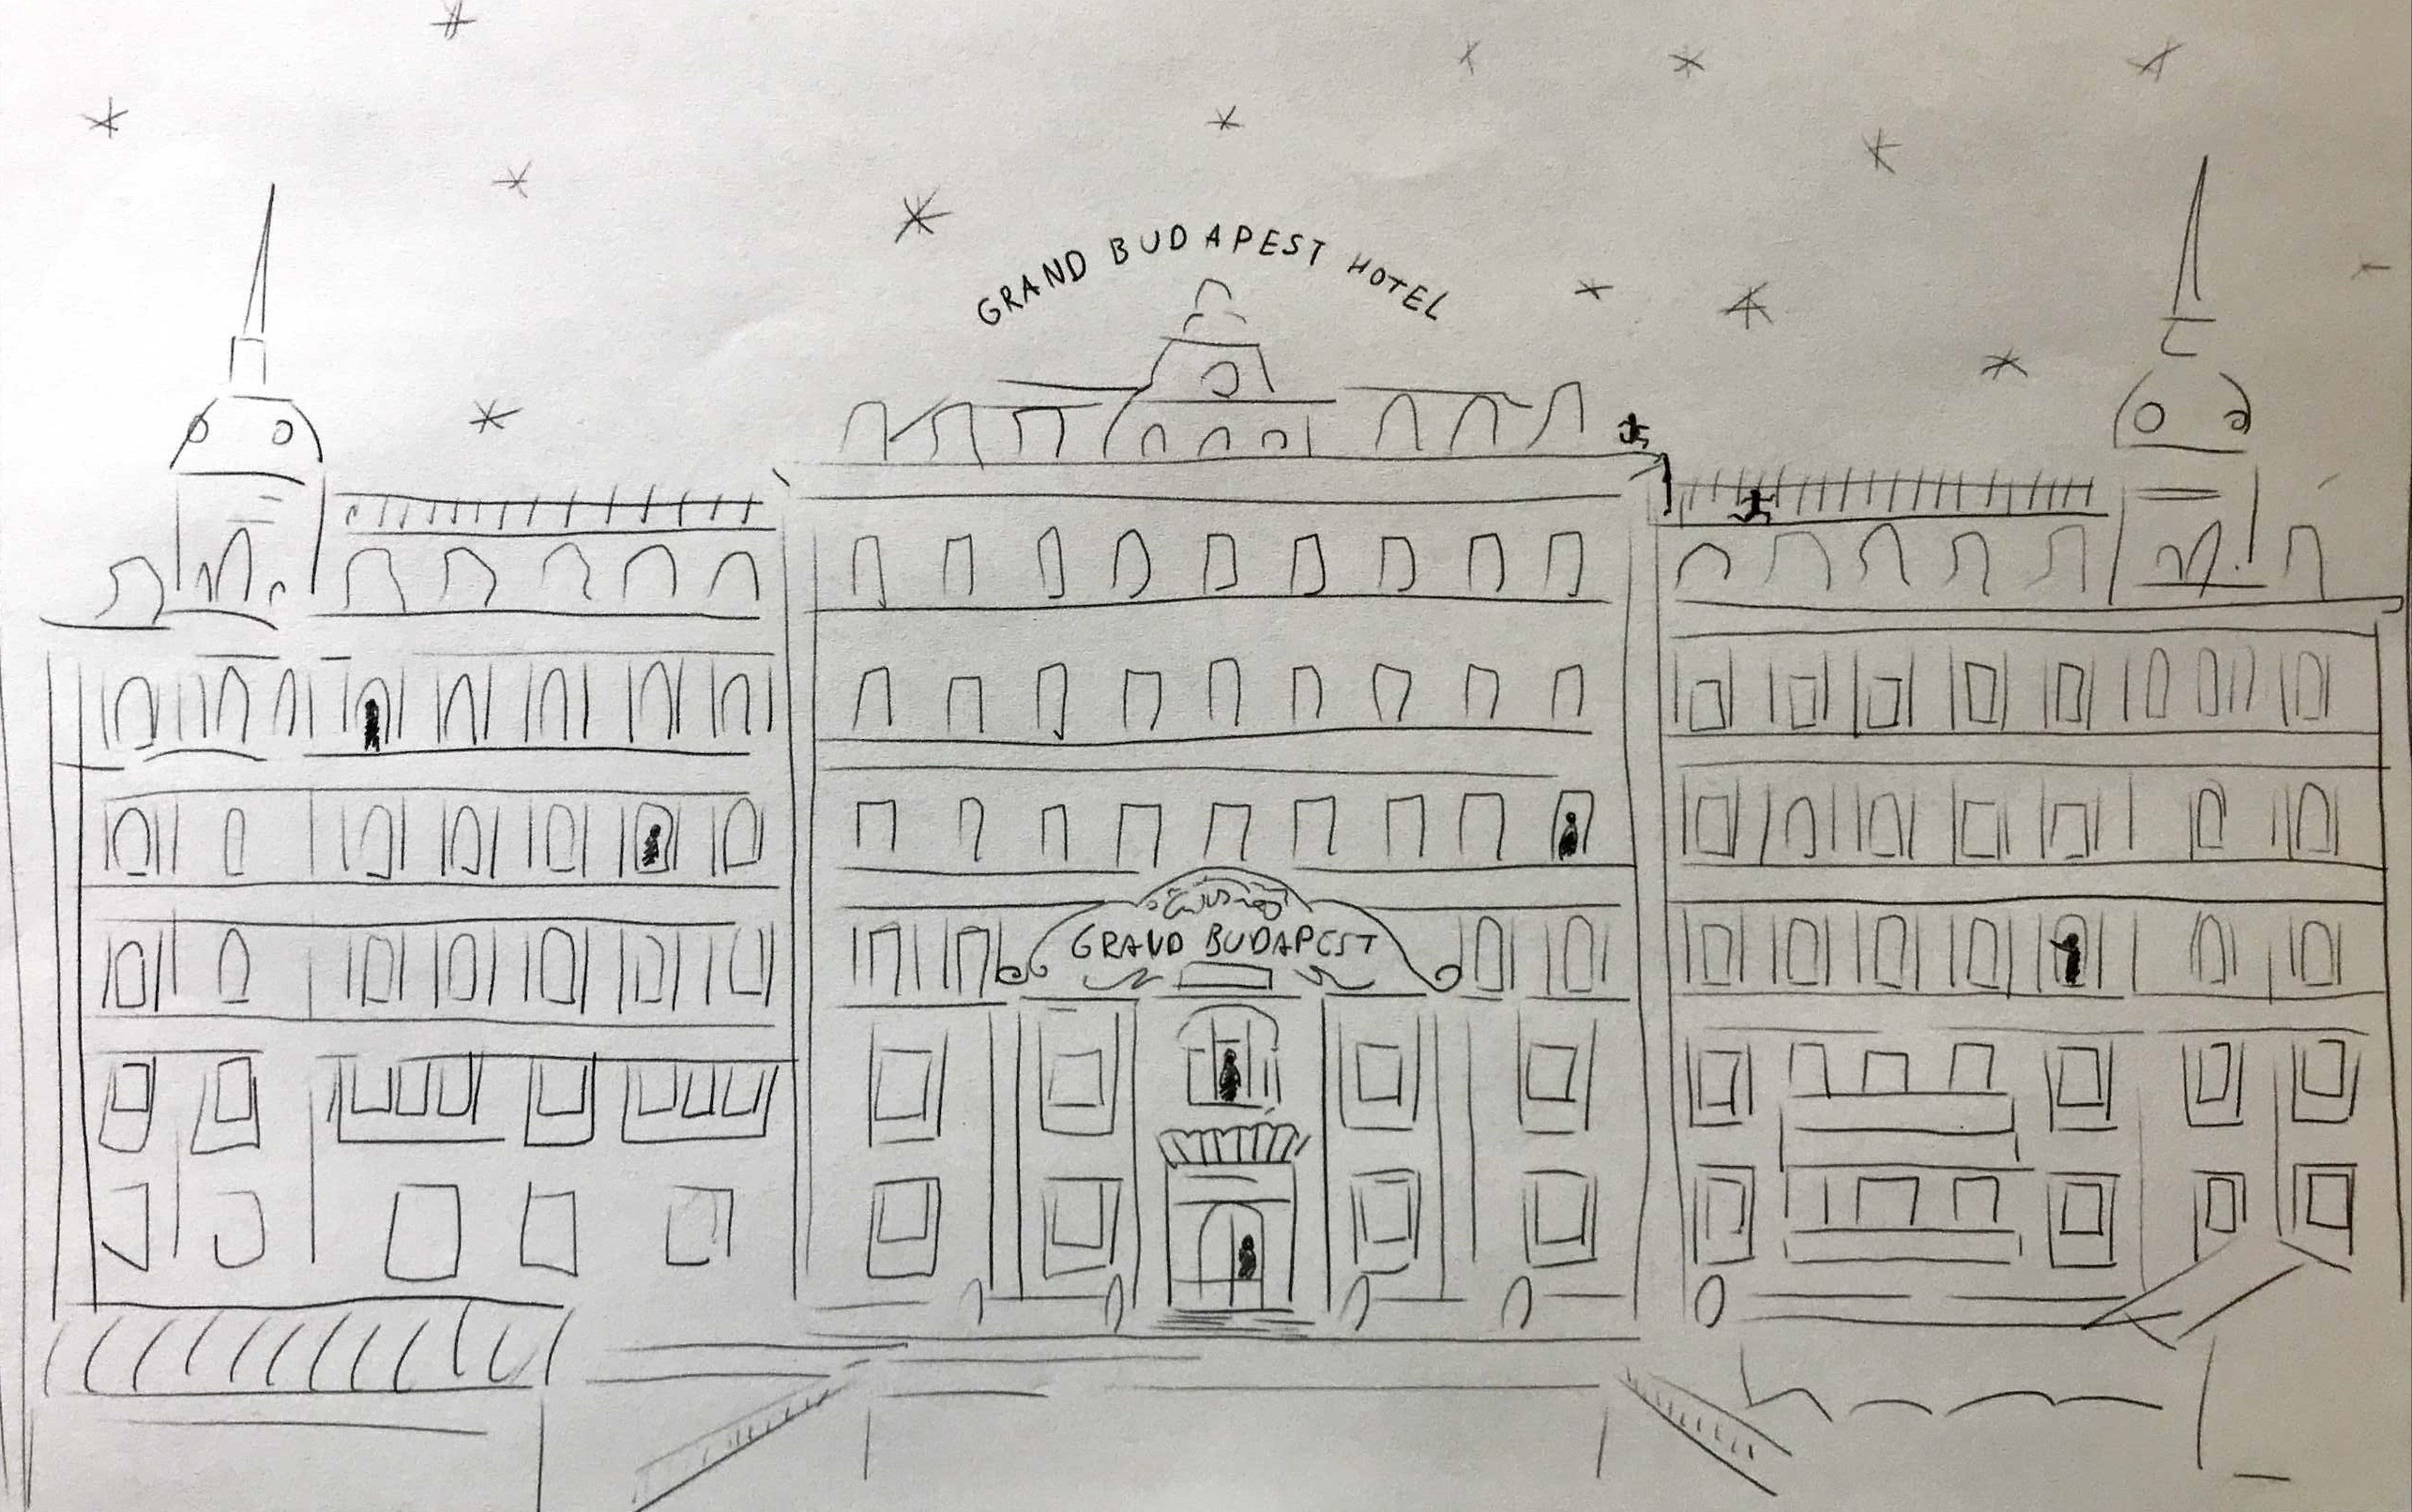 GRAND BUDAPEST HOTEL
GRAND BUDAPEST